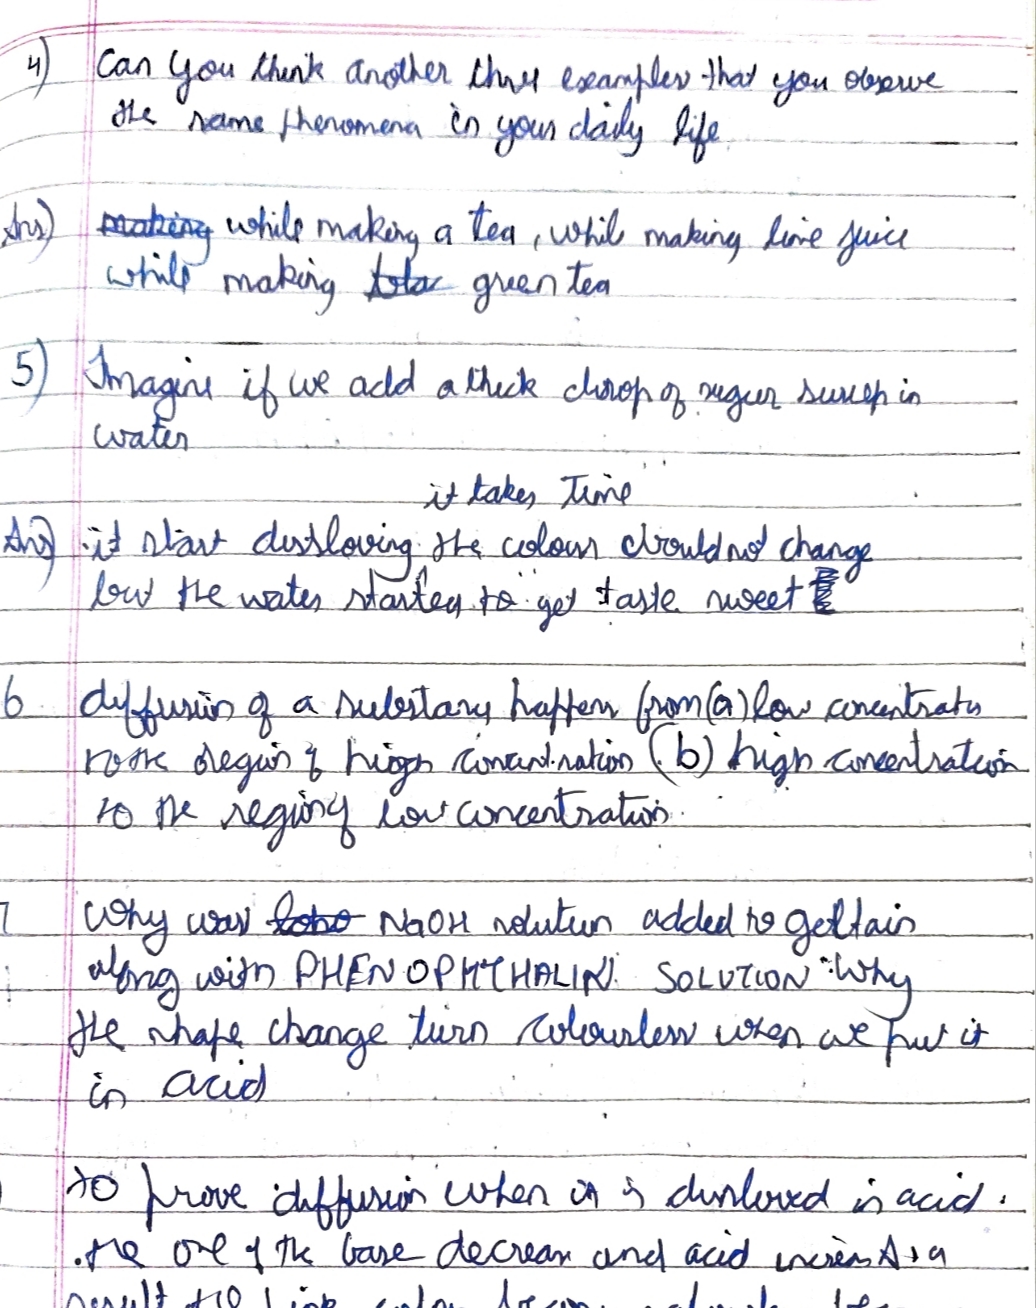 4) Can you think another three examples that you observe
the same phenomena in your daily life
Ans) making while making a tea, while making lime juice
while making green tea
5) Imagine if we add a thick drop of suger surup in
water
it takes Time
Ans) it start dissloving the colour should not change
but the water started to get taste sweet
6 diffusion of a substany happen from (a) low concentrate
to the region of high concentration (b) high concentration
to the region of low concentration.
7 Why was NaOH solution added to geltain
along with PHENOPHTHALIN SOLUTION Why
the shape change turn colourless when we put it
in acid
to prove diffusion when it is disloved in acid.
the one of the base decrease and acid As a
result the pink color